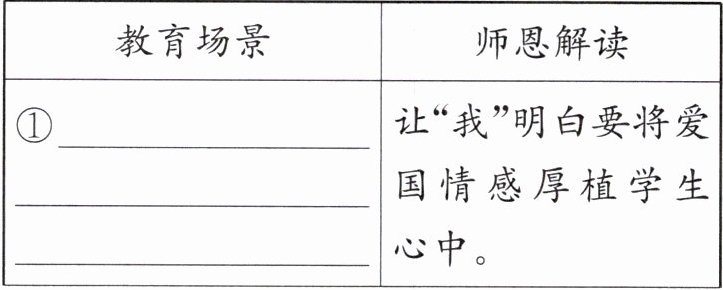 教育场景 师恩解读
①
让“我”明白要将爱
国情感厚植学生
心中。